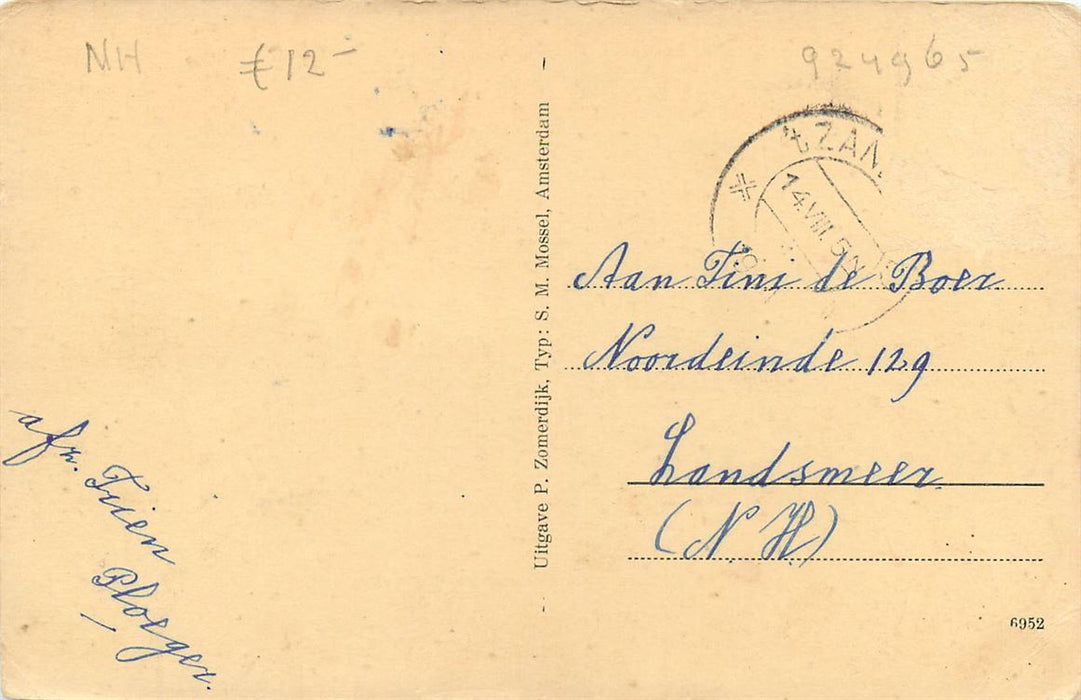 NH € 12-
924965
'tZAN
14.VIII.5
19
Aan Tini de Boer
Noordeinde 129
Landsmeer.
(N.H.)
afz. Trien
Ploeger.
Uitgave P. Zomerdijk, Typ: S. M. Mossel, Amsterdam
6952